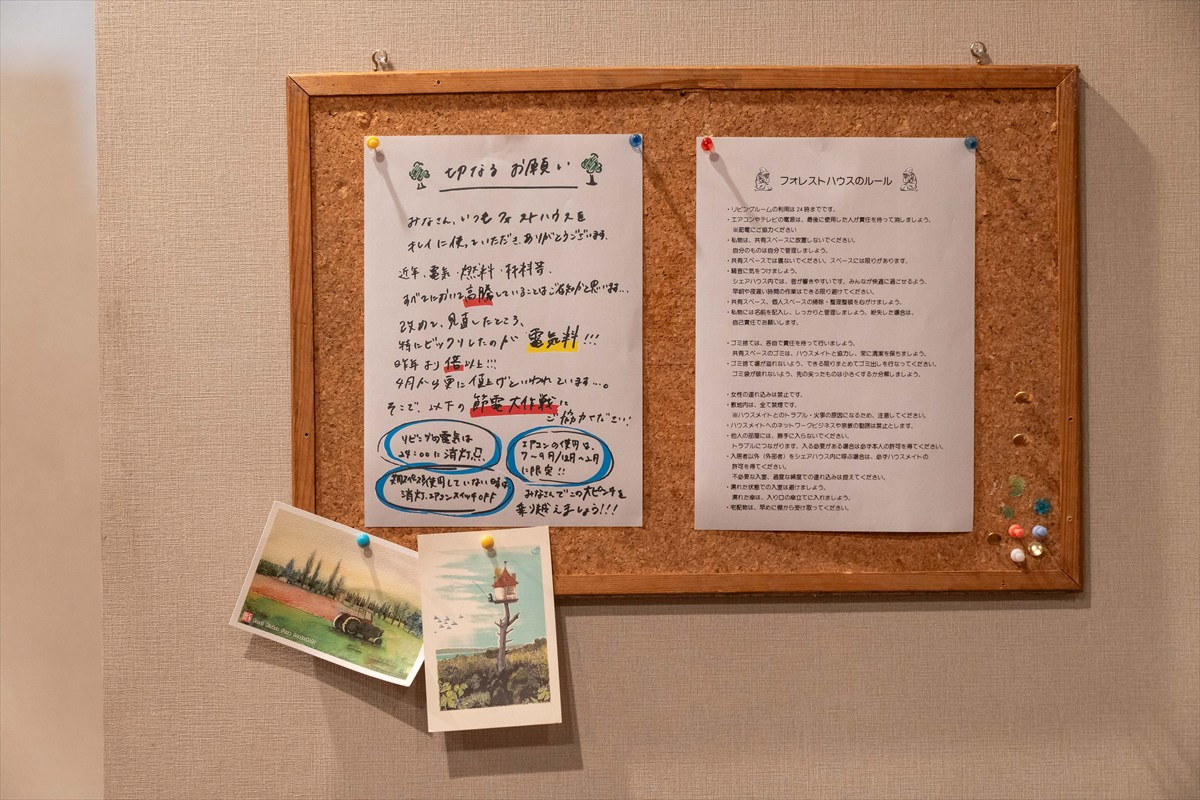 切なる お願い
みなさん、いつもフォレストハウスを
キレイに使っていただき、ありがとうございます。
近年、電気・燃料・材料等、
すべてにおいて高騰していることはご存知かと思います...
改めて、見直したところ、
特にビックリしたのが 電気料!!!
昨年より倍以上!!!
4月から更に値上げといわれています...。
そこで、以下の節電大作戦に
ご協力ください!
リビングの電気は
24:00に消灯!!
エアコンの使用は、
7〜9月/12月〜2月
に限定!!
使用していない時は
消灯、エアコンスイッチOFF
みなさんでこの大ピンチを
乗り越えましょう!!!
フォレストハウスのルール
・リビングルームの利用は24時までです。
・エアコンやテレビの電源は、最後に使用した人が責任を持って消しましょう。
※節電にご協力ください
・私物は、共有スペースに放置しないでください。
自分のものは自分で管理しましょう。
・共有スペースでは寝ないでください。スペースには限りがあります。
・騒音に気をつけましょう。
シェアハウス内では、音が響きやすいです。みんなが快適に過ごせるよう、
早朝や夜遅い時間の作業はできる限り避けてください。
・共有スペース、個人スペースの掃除・整理整頓を心がけましょう。
・私物には名前を記入し、しっかりと管理しましょう。紛失した場合は、
自己責任でお願いします。
・ゴミ捨ては、各自で責任を持って行いましょう。
共有スペースのゴミは、ハウスメイトと協力し、常に清潔を保ちましょう。
・ゴミ捨て場が溢れないよう、できる限りまとめてゴミ出しを行なってください。
ゴミ袋が破れないよう、先の尖ったものは小さくするか分解しましょう。
・女性の連れ込みは禁止です。
・敷地内は、全て禁煙です。
※ハウスメイトとのトラブル・火事の原因になるため、注意してください。
・ハウスメイトへのネットワークビジネスや宗教の勧誘は禁止とします。
・他人の部屋には、勝手に入らないでください。
トラブルにつながります。入る必要がある場合は必ず本人の許可を得てください。
・入居者以外（外部者）をシェアハウス内に呼ぶ場合は、必ずハウスメイトの
許可を得てください。
不必要な入室、過度な頻度での連れ込みは控えてください。
・濡れた状態での入室は避けましょう。
濡れた傘は、入り口の傘立てに入れましょう。
・宅配物は、早めに棚から受け取ってください。